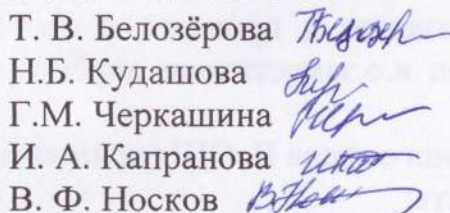 Т. В. Белозёрова
Н.Б. Кудашова
Г.М. Черкашина
И. А. Капранова
В. Ф. Носков